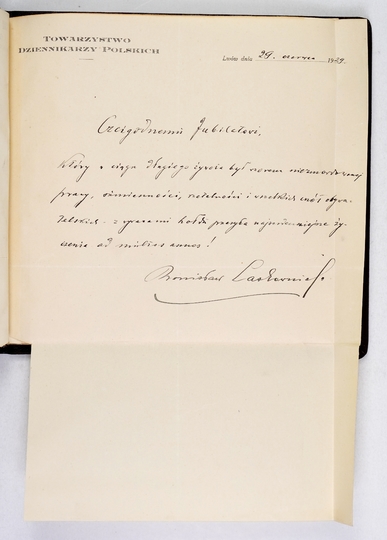 TOWARZYSTWO
DZIENNIKARZY POLSKICH
Lwów dnia 29. czerwca 1929.
Czcigodnemu Jubilatowi,
który w ciągu długiego życia był wzorem niezmordowanej
pracy, sumienności, rzetelności i wszelkich cnót obywa-
telskich - z wyrazami hołdu przesyła najserdeczniejsze ży-
czenia ad multos annos!
Bronisław Laskownicki